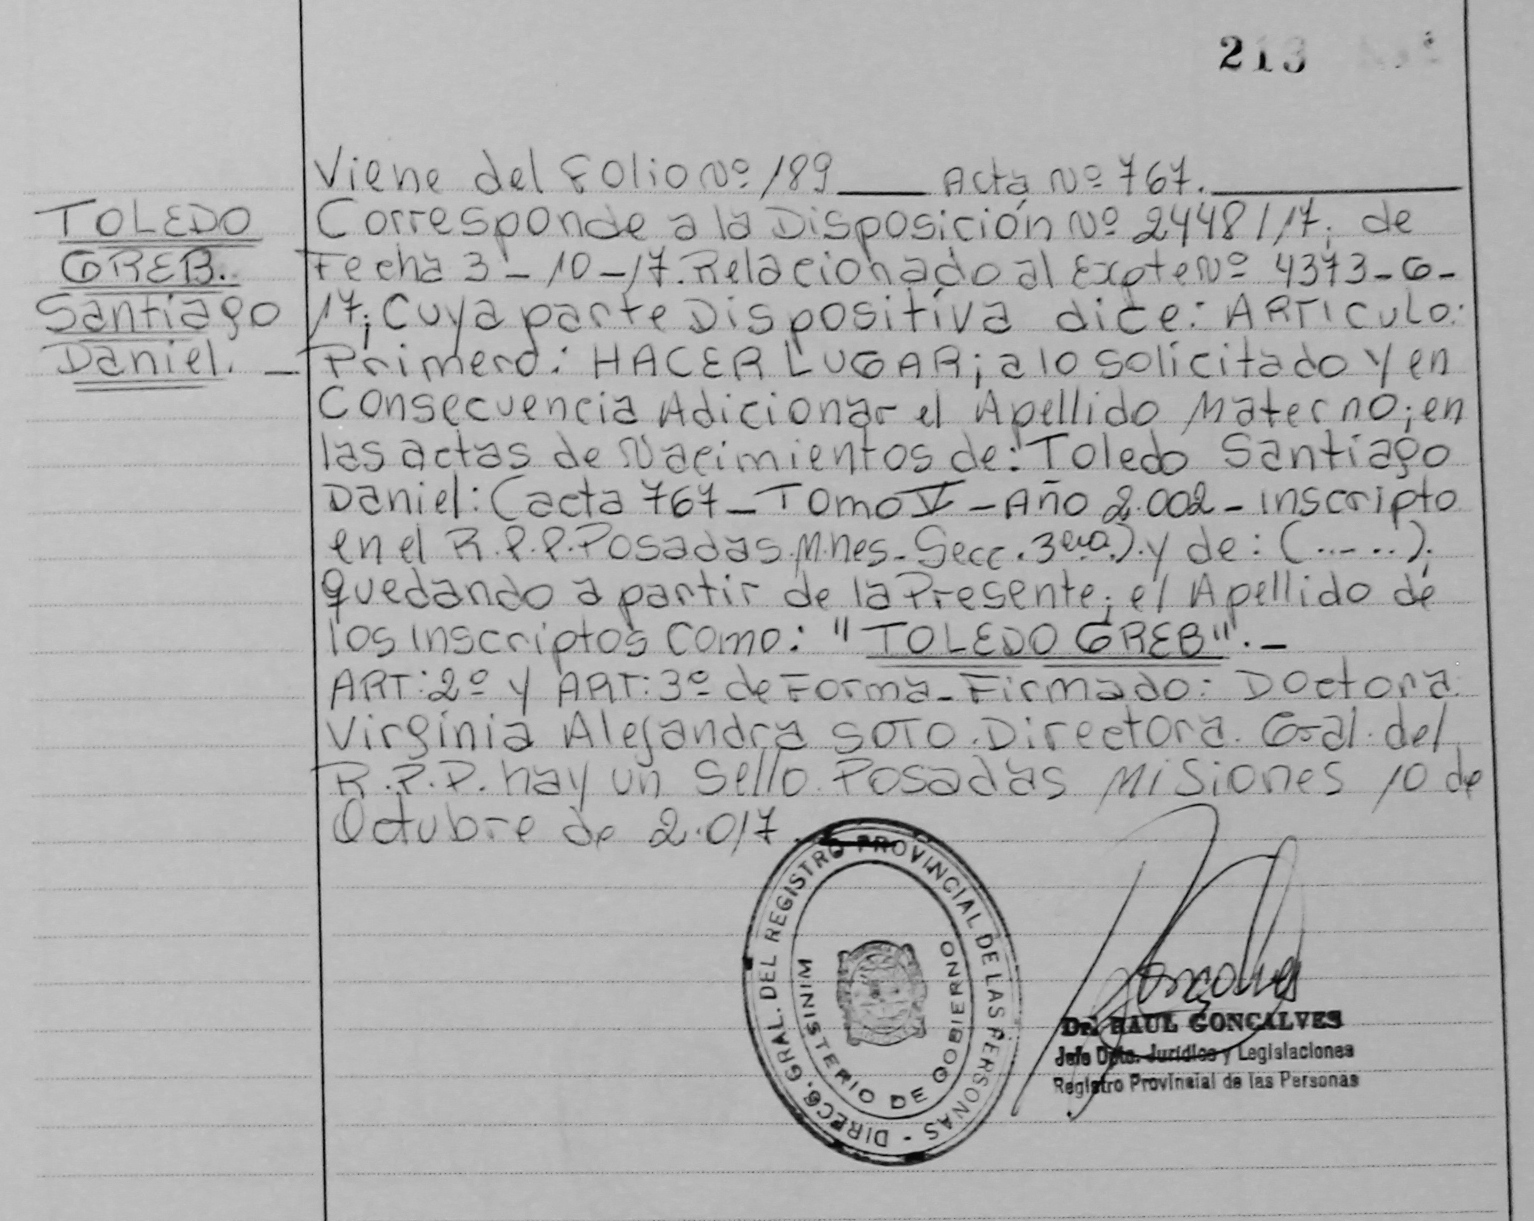 213
Viene del Folio Nº 189 ____ Acta Nº 767. ____
TOLEDO
GREB.
Santiago
Daniel. _
Corresponde a la Disposición Nº 2448/17; de
Fecha 3-10-17. Relacionado al Expte Nº 4373-G-
17; Cuya parte Dispositiva dice: ARTICULO:
Primero: HACER LUGAR; a lo solicitado y en
Consecuencia Adicionar el Apellido Materno; en
las actas de Nacimientos de: Toledo Santiago
Daniel: (acta 767_Tomo V_Año 2.002_inscripto
en el R.P.P. Posadas. Mnes_Secc. 3era.). y de: (.....).
quedando a partir de la Presente; el Apellido de
los inscriptos Como: "TOLEDO GREB"._
ART: 2º y ART: 3º de Forma_Firmado: Doctora
Virginia Alejandra SOTO. Directora. Gral. del
R.P.P. hay un Sello. Posadas Misiones 10 de
Octubre de 2.017.
DIREC. GRAL. DEL REGISTRO PROVINCIAL DE LAS PERSONAS -
MINISTERIO DE GOBIERNO
Gonçalves
Dr. RAUL GONCALVES
Jefe Dpto. Jurídico y Legislaciones
Registro Provincial de las Personas